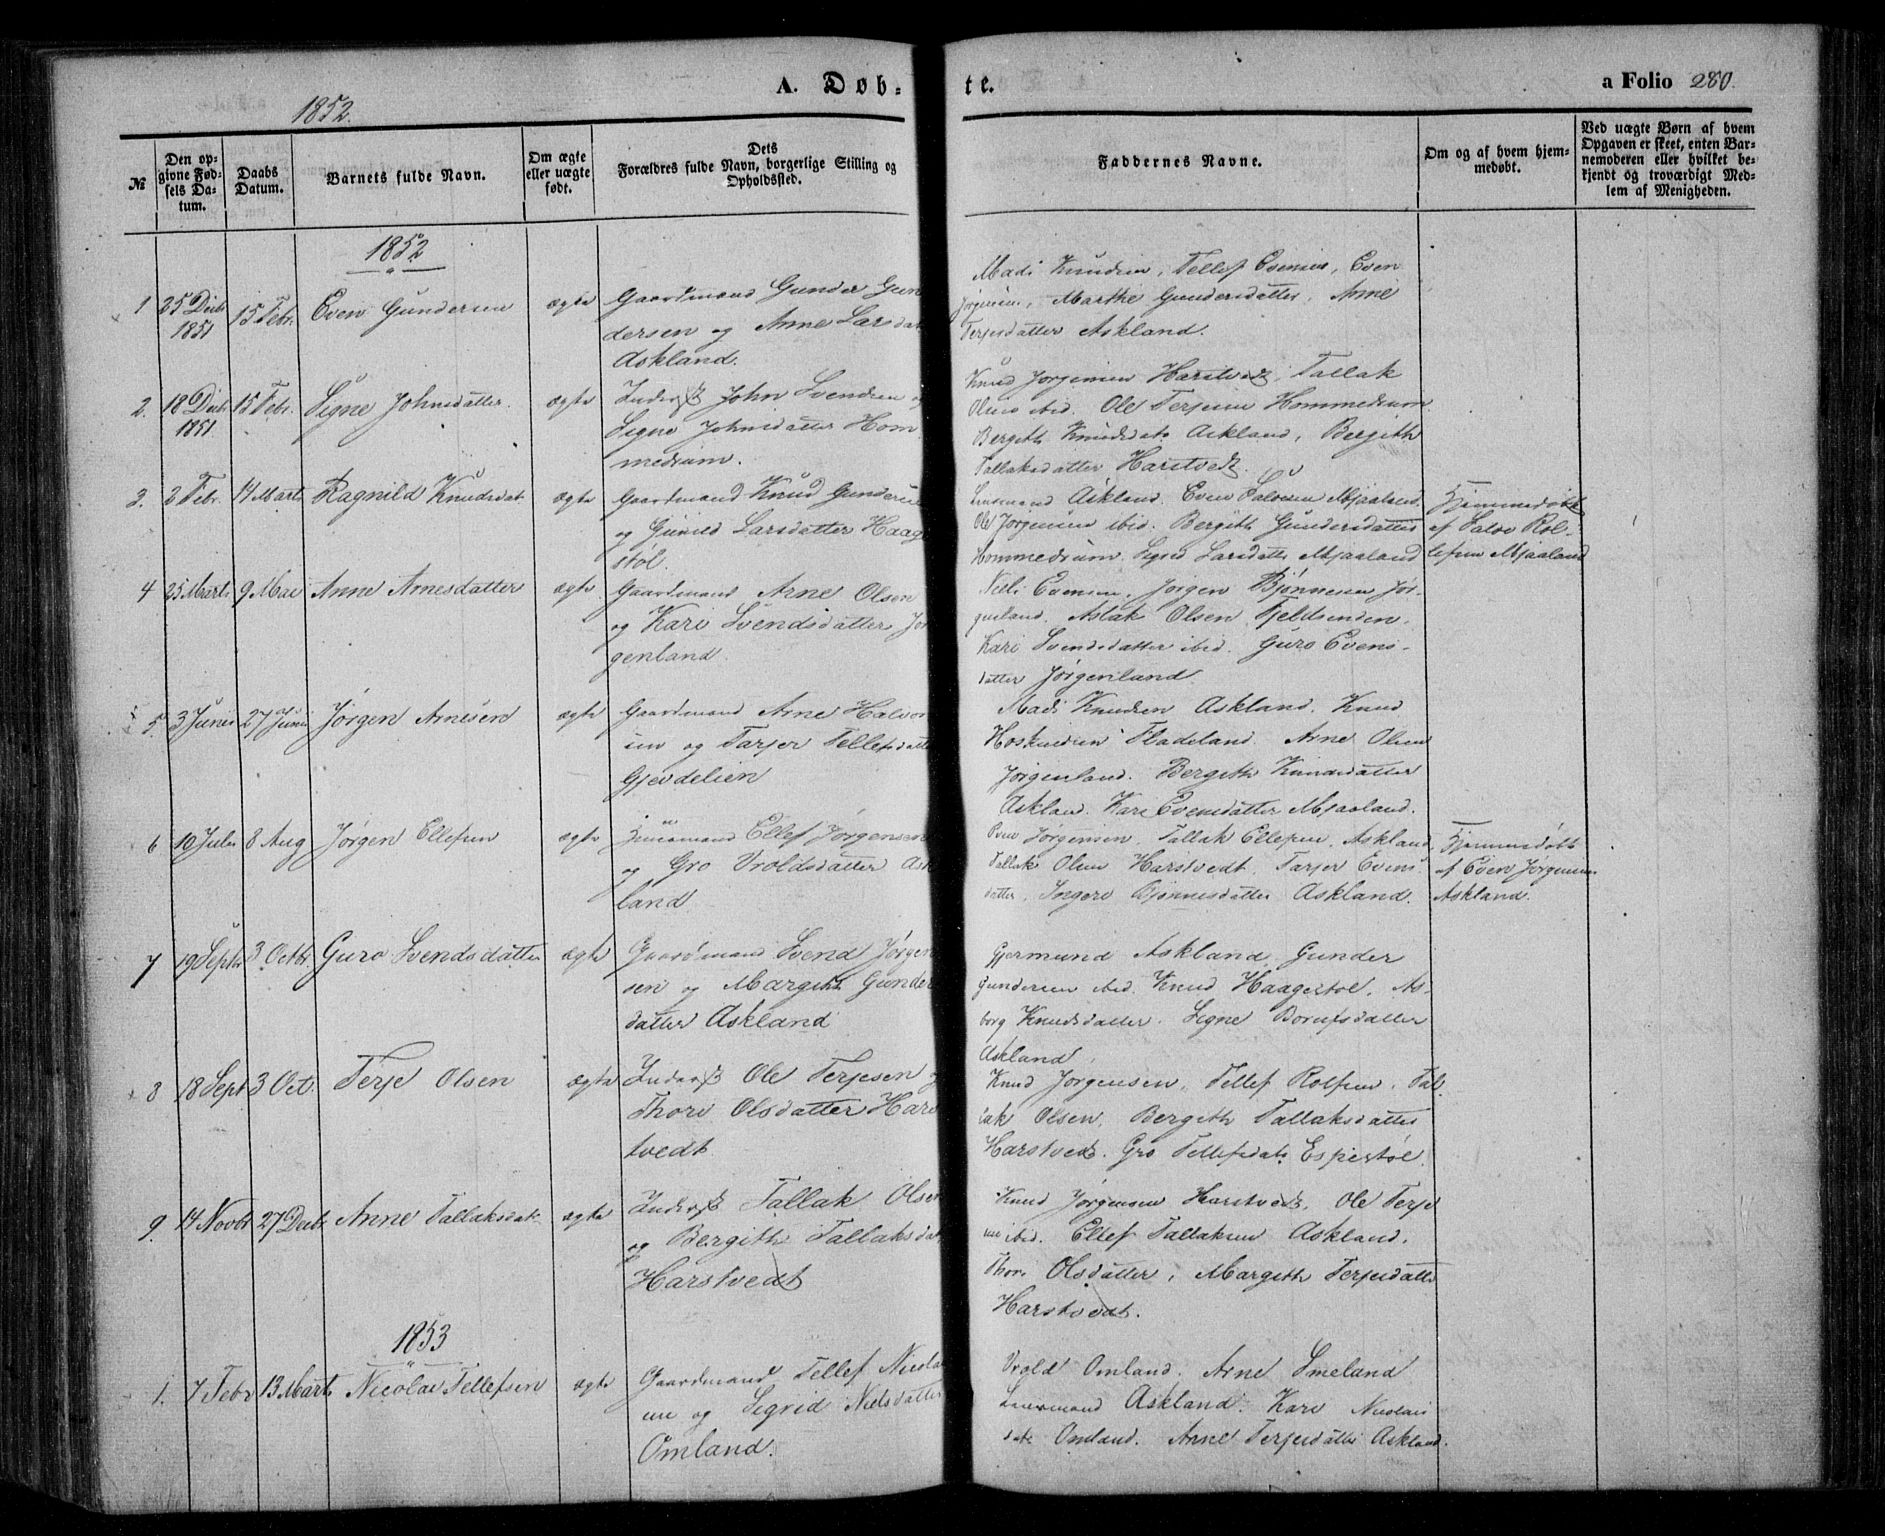 A. Døb-
te.
a Folio 280.
1852.
№
Den op-
givne Fød-
sels Da-
tum.
Daabs
Datum.
Barnets fulde Navn.
Om ægte
eller uægte
født.
Dets
Forældres fulde Navn, borgerlige Stilling og
Opholdssted.
Faddernes Navne.
Om og af hvem hjem-
medøbt.
Ved uægte Børn af hvem
Opgaven er skeet, enten Bar-
nemoderen eller hvilket be-
kjendt og troværdigt Med-
lem af Menigheden.
1852
1 25 Decbr 1851 15 Febr. Even Gundersen ægte
Gaardmand Gunder Gun
dersen og Anne Larsdat
Askland.
Madi Knudsen, Tellef Evensen, Even
Jørgensen, Marthe Gundersdatter, Anne
Terjesdatter Askland.
2. 18 Decbr 1851 15 Febr. Signe Johnsdatter ægte
Inderst John Svendsen og
Signe Johnsdatter Hom
medrum.
Knud Jorgensen Harstvedt, Tallak
Olsen ibid. Ole Terjesen Hommedrum
Bergith Knudsdatr Askland, Bergith
Tallaksdatter Harstvedt.
3. 2 Febr. 14 Marts Ragnild Knudsdat ægte
Gaardmand Knud Gundersen
og Gunild Larsdatter Haage
støl.
Lensmand Askland. Even Salvesen Mjaaland
Ole Jorgensen ibid. Bergith Gundersdatter
Hommedrum. Sigrid Larsdatter Mjaaland
Hjemmedøbt
af Salve Rol-
lefsen Mjaaland
4 25 Marts 9 Mai Anne Arnesdatter ægte
Gaardmand Arne Olsen
og Kari Svendsdatter Jør
genland.
Niels Evensen. Jørgen Bjønnesen Jør-
genland. Aslak Olsen Fjeldsenden.
Kari Svendsdatter ibid. Guro Evens-
datter Jørgenland.
5. 3 Juni 27 Juni Jørgen Arnesen ægte
Gaardmand Arne Halvor
sen og Tarjer Tellefsdatt
Gjevdelien
Madi Knudsen Askland. Knud
Hoskuldsen Fladeland. Arne Olsen
Jørgenland. Bergith Knudsdatter
Asklan. Kari Evensdatter Mjaaland.
6 10 Juli 8 Aug Jørgen Ellefsen ægte
Huusmand Ellef Jørgensen
og Gro Vroldsdatter Ask
land
Even Jørgensen Tallak Ellefsen. Askland
Tallak Olsen Harstvedt. Tarjer Evens
datter, Ingere Bjønnesdatter Askland.
Hjemmedøbt
af Even Jørgensen
Askland.
7 19 Septbr 3 Octbr Guro Svendsdatter ægte
Gaardmand Svend Jørgen
sen og Margith Gunder
datter Askland
Gjermund Askland, Gunder
Gundersen ibid. Knud Haagestøl. As-
borg Knudsdatter. Signe Borufsdatter
Askland.
8 18 Sept 3 Oct. Terje Olsen ægte
Inderst Ole Terjesen og
Thore Olsdatter Hars
tvedt
Knud Jørgensen, Tellef Rolfsen, Tal
lak Olsen, Bergith Tallaksdatter
Harstvedt. Gro Tellefsdatr Espestøl.
9. 14 Novbr 27 Decbr Anne Tallaksdatr ægte
Inderst Tallak Olsen
og Bergith Tallaksdatr
Harstvedt
Knud Jørgensen Harstvedt, Ole Terje
sen ibid. Ellef Tallaksen Askland,
Thore Olsdatter, Margith Terjesdatter
Harstvedt.
1853
1. 7 Febr 13 Marts Nicolai Tellefsen ægte
Gaardmand Tellef Nicolai
sen og Sigrid Nielsdatter
Omland.
Vrold Omland. Arne Smeland
Lensmand Askland. Kari Nicolai
datr Omland. Anne Terjesdatter Askland.